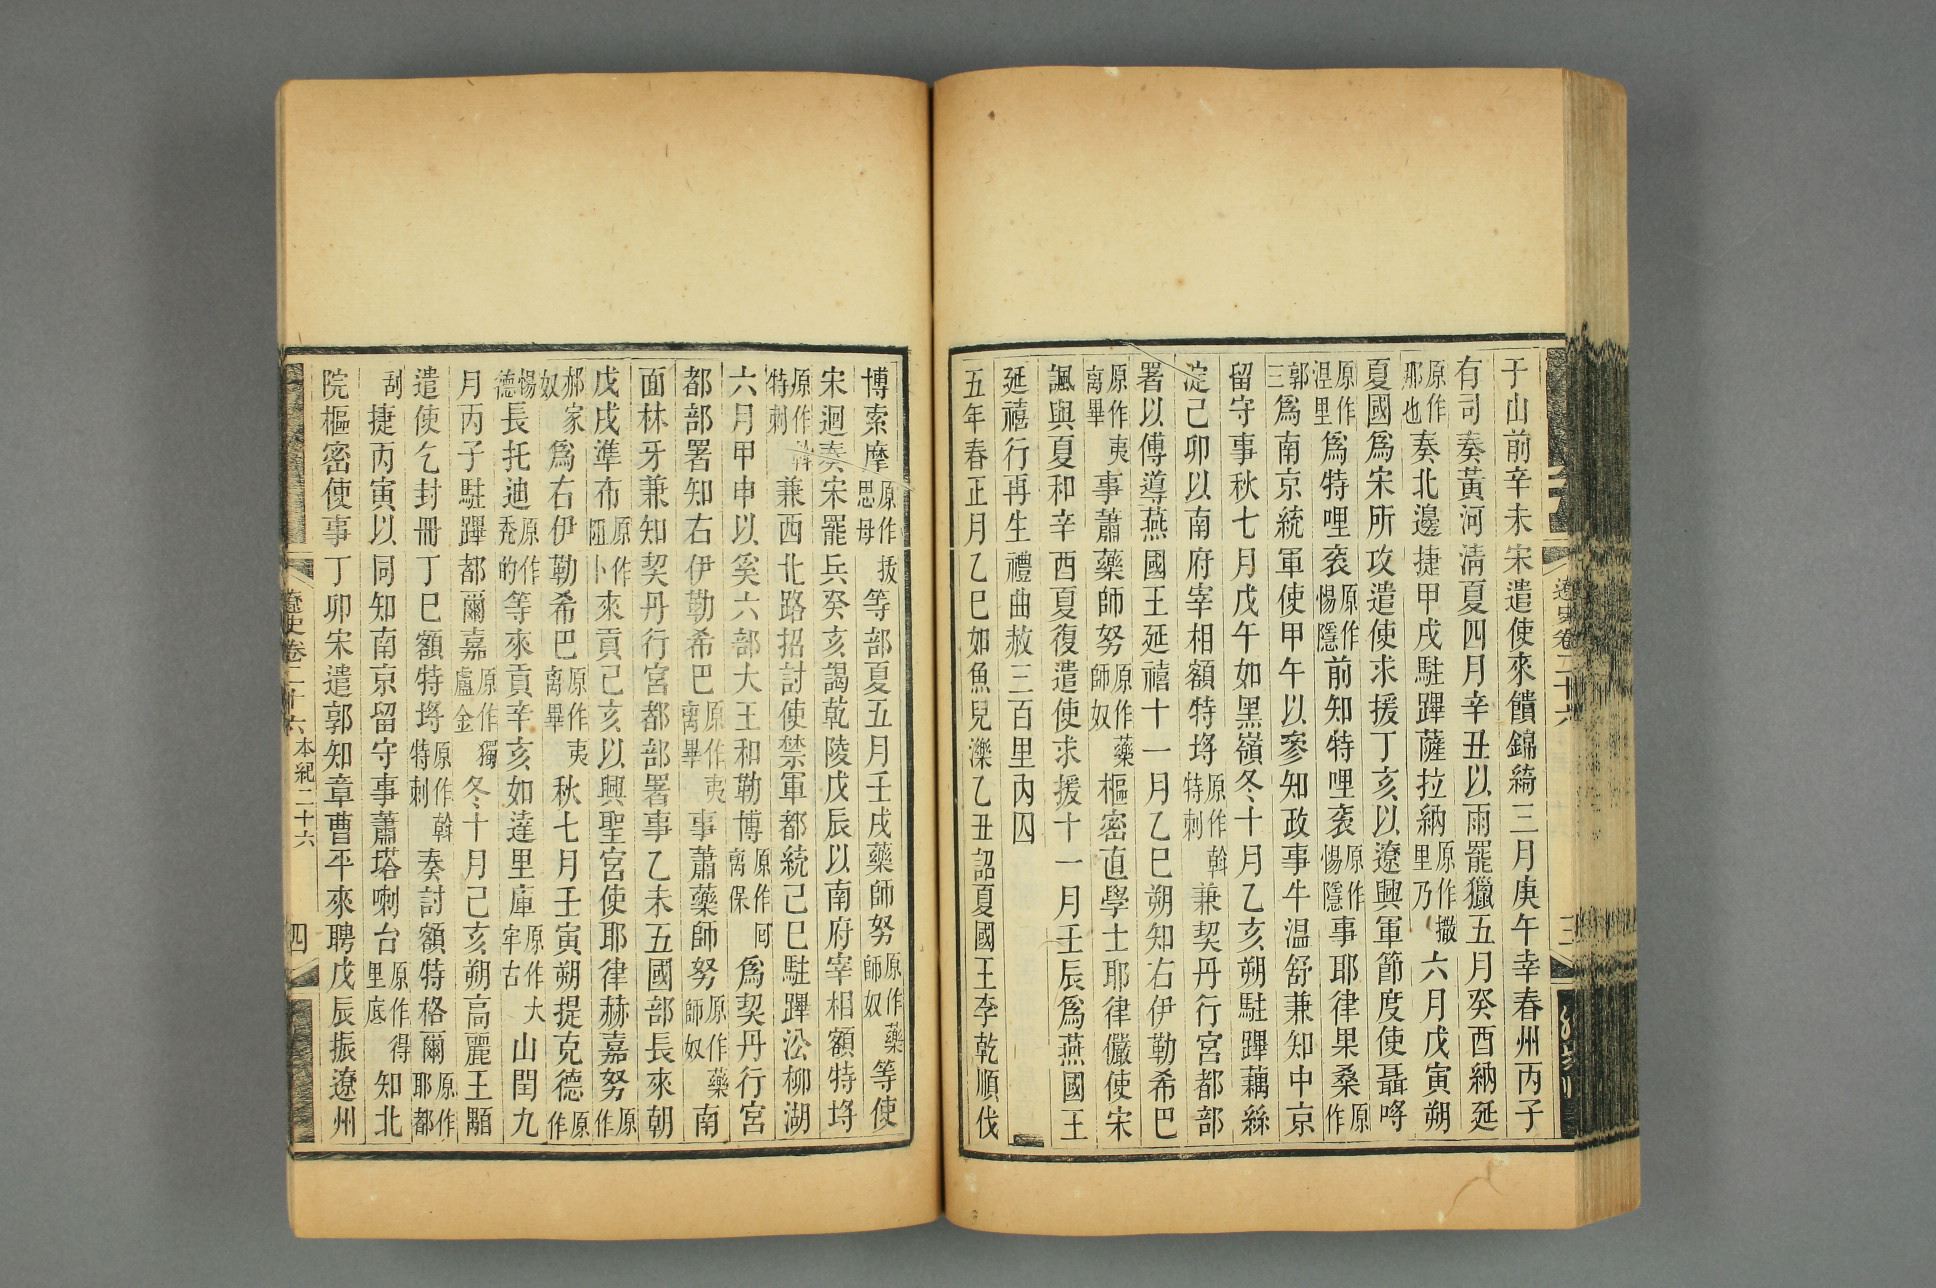 于山前辛未宋遣使來饋錦綺三月庚午幸春州丙子
有司奏黃河清夏四月辛丑以雨罷獵五月癸酉納延
原作那也奏北邊捷甲戌駐蹕薩拉納原作撒里乃六月戊寅朔
夏國爲宋所攻遣使求援丁亥以遼興軍節度使聶哷
原作湼里爲特哩袞原作惕隱前知特哩袞原作惕隱事耶律果桑原作
郭三爲南京統軍使甲午以參知政事牛温舒兼知中京
留守事秋七月戊午如黑嶺冬十月乙亥朔駐蹕藕絲
淀己卯以南府宰相額特埒原作斡特剌兼契丹行宮都部
署以傅導燕國王延禧十一月乙巳朔知右伊勒希巴
原作夷離畢事蕭藥師努原作藥師奴樞密直學士耶律儼使宋
諷與夏和辛酉夏復遣使求援十一月壬辰爲燕國王
延禧行再生禮曲赦三百里內囚
五年春正月乙巳如魚兒濼乙丑詔夏國王李乾順伐
遼史卷二十六
三
博索摩原作拔思母等部夏五月壬戌藥師努原作藥師奴等使
宋迴奏宋罷兵癸亥謁乾陵戊辰以南府宰相額特埒
原作斡特剌兼西北路招討使禁軍都統己巳駐蹕沿柳湖
六月甲申以奚六部大王和勒博原作回离保爲契丹行宮
都部署知右伊勒希巴原作夷离畢事蕭藥師努原作藥師奴南
面林牙兼知契丹行宮都部署事乙未五國部長來朝
戊戌準布原作阻卜來貢己亥以興聖宮使耶律赫嘉努原作
郝家奴爲右伊勒希巴原作夷离畢秋七月壬寅朔提克德原作
惕德長托迪原作禿的等來貢辛亥如達里庫原作大牢古山閏九
月丙子駐蹕都爾嘉原作獨盧金冬十月己亥朔高麗王顒
遣使乞封冊丁巳額特埒原作斡特剌奏討額特格爾原作耶都
刮捷丙寅以同知南京留守事蕭塔喇台原作得里底知北
院樞密使事丁卯宋遣郭知章曹平來聘戊辰振遼州
遼史卷二十六
本紀二十六
四